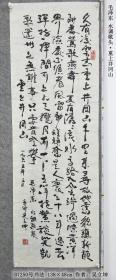 毛泽东·水调歌头·重上井冈山
久有凌云志重上井冈山千里来寻故地旧貌变新颜到
处莺歌燕舞更有潺潺流水高路入云端过了黄洋界
险处不须看风雷动旌旗奋是人寰三十八年过去
弹指一挥间可上九天揽月可下五洋捉鳖谈笑凯
歌还世上无难事只要肯登攀
重上井冈山
一九六五年
毛泽东
01250号书法 138X48cm 作者：吴立坤